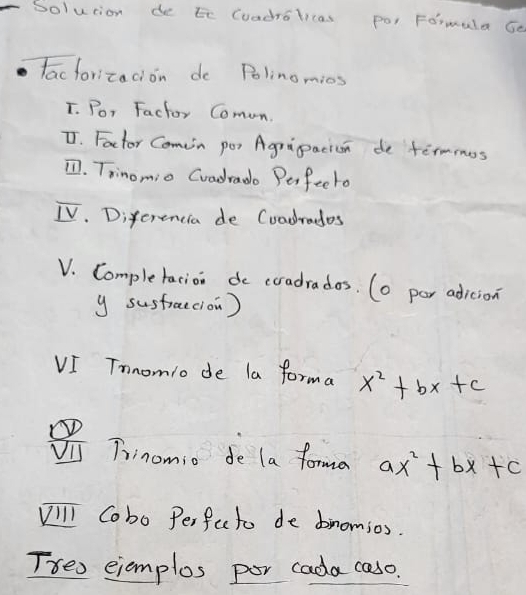 - Solucion de Ec Cuadráticas por Fórmula Ge
• Factorización de Polinomios
I. Por Factor Comun.
II. Factor Común por Agrupación de términos
III. Trinomio Cuadrado Perfecto
IV. Diferencia de Cuadrados
V. Completacion de cuadrados. (o por adición
y sustracción)
VI Trinomio de la forma x² + bx + c
VII Trinomio de la forma ax² + bx + c
VIII Cobo Perfecto de binomios.
Tres ejemplos por cada caso.